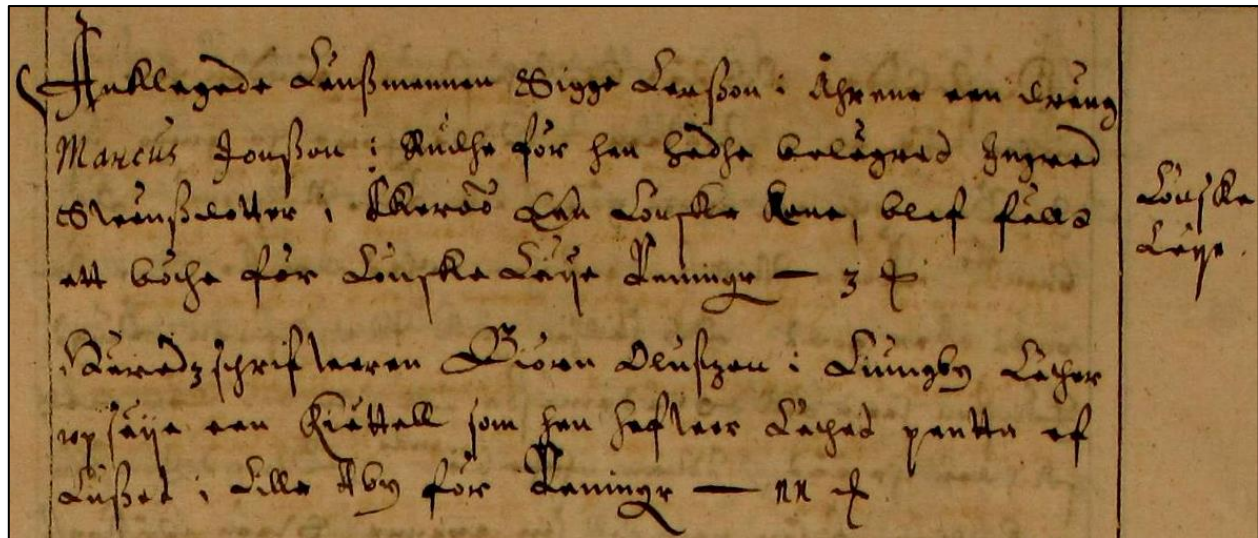 Anklagade Länßmannen Sigge Larßon i Åhrene een dreng
Marcus Jonßon i Rudhe för han hadhe belägrad Ingred
Swänßdotter i Ekeröö Een Lönska Kona, blef fälld
att böthe för Lönska Läije Peningr — 3 
Häredzschrifwaren Biörn Olufszon i Liungby Läther
upsäije een Kiättell som han hafwer Låthed pantta af
Laßed i Lilla Åby för Peningr — 
Lönska
Läije